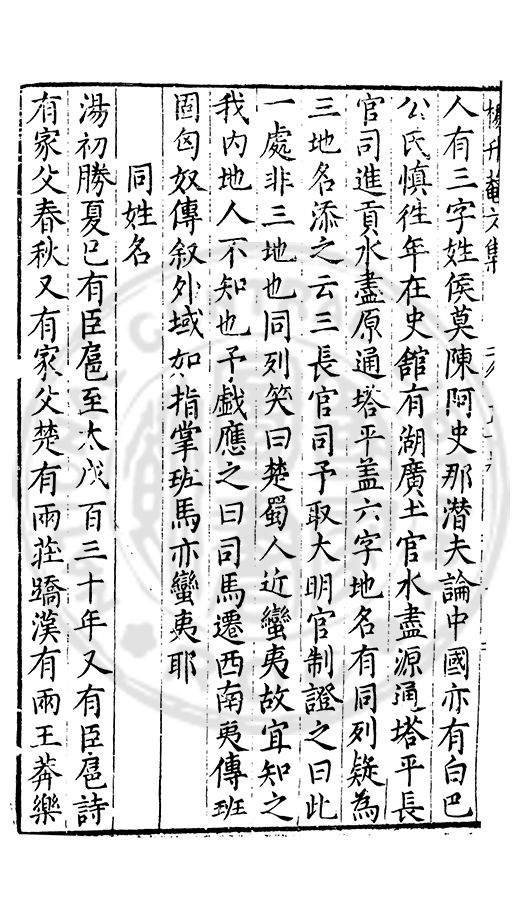 楊升菴文集
人有三字姓侯莫陳阿史那潛夫論中國亦有白巴
公氏慎徃年在史舘有湖廣土官水盡源通塔平長
官司進貢水盡原通塔平盖六字地名有同列疑為
三地名添之云三長官司予取大明官制證之曰此
一處非三地也同列笑曰楚蜀人近蠻夷故宜知之
我内地人不知也予戲應之曰司馬遷西南夷傳班
固匈奴傳叙外域如指掌班馬亦蠻夷耶
同姓名
湯初勝夏已有臣扈至太戊百三十年又有臣扈詩
有家父春秋又有家父楚有兩莊蹻漢有兩王莽樂